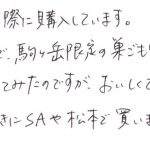 際に購入しています。
で、駒ヶ岳限定の巣ごも
てみたのですが、おいしくて
きにSAや松本で買いま